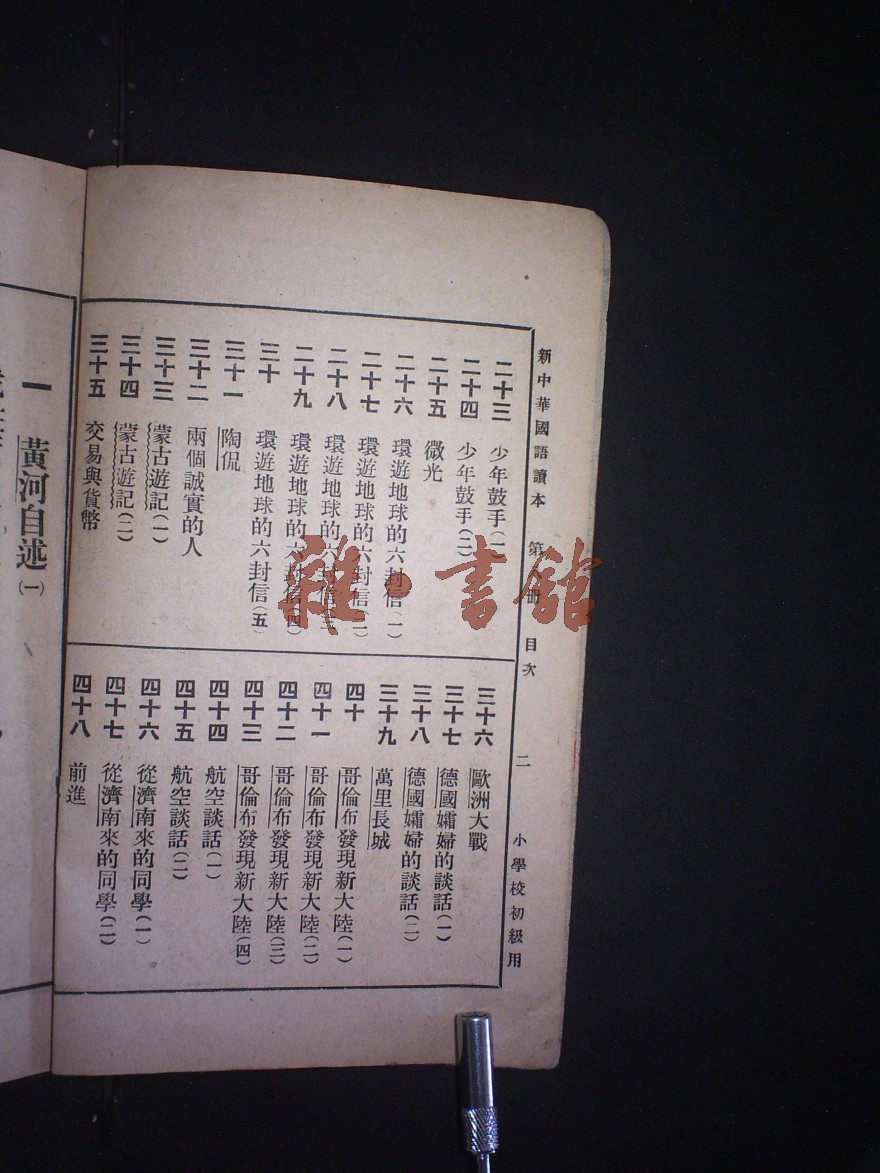 新中華國語讀本 第八冊 目次 二 小學校初級用
二十三 少年鼓手(一)
二十四 少年鼓手(二)
二十五 微光
二十六 環遊地球的六封信(一)
二十七 環遊地球的六封信(二)
二十八 環遊地球的六封信
二十九 環遊地球的六封信(四)
三十 環遊地球的六封信(五)
三十一 陶侃
三十二 兩個誠實的人
三十三 蒙古遊記(一)
三十四 蒙古遊記(二)
三十五 交易與貨幣
三十六 歐洲大戰
三十七 德國孀婦的談話(一)
三十八 德國孀婦的談話(二)
三十九 萬里長城
四十 哥倫布發現新大陸(一)
四十一 哥倫布發現新大陸(二)
四十二 哥倫布發現新大陸(三)
四十三 哥倫布發現新大陸(四)
四十四 航空談話(一)
四十五 航空談話(二)
四十六 從濟南來的同學(一)
四十七 從濟南來的同學(二)
四十八 前進
一 黃河自述(一)
雜·書館